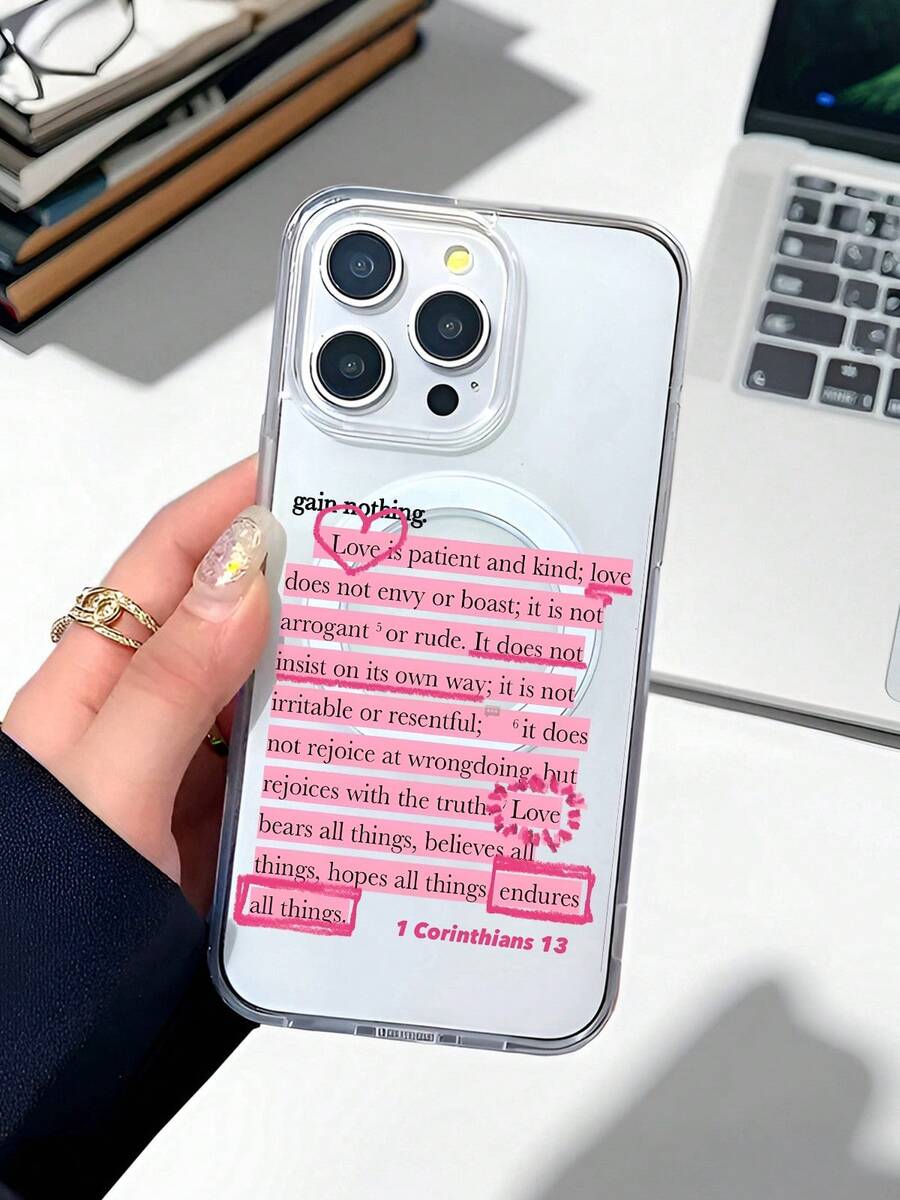 gain nothing.
Love is patient and kind; love
does not envy or boast; it is not
arrogant 5 or rude. It does not
insist on its own way; it is not
irritable or resentful; 6 it does
not rejoice at wrongdoing, but
rejoices with the truth. Love
bears all things, believes all
things, hopes all things, endures
all things.
1 Corinthians 13